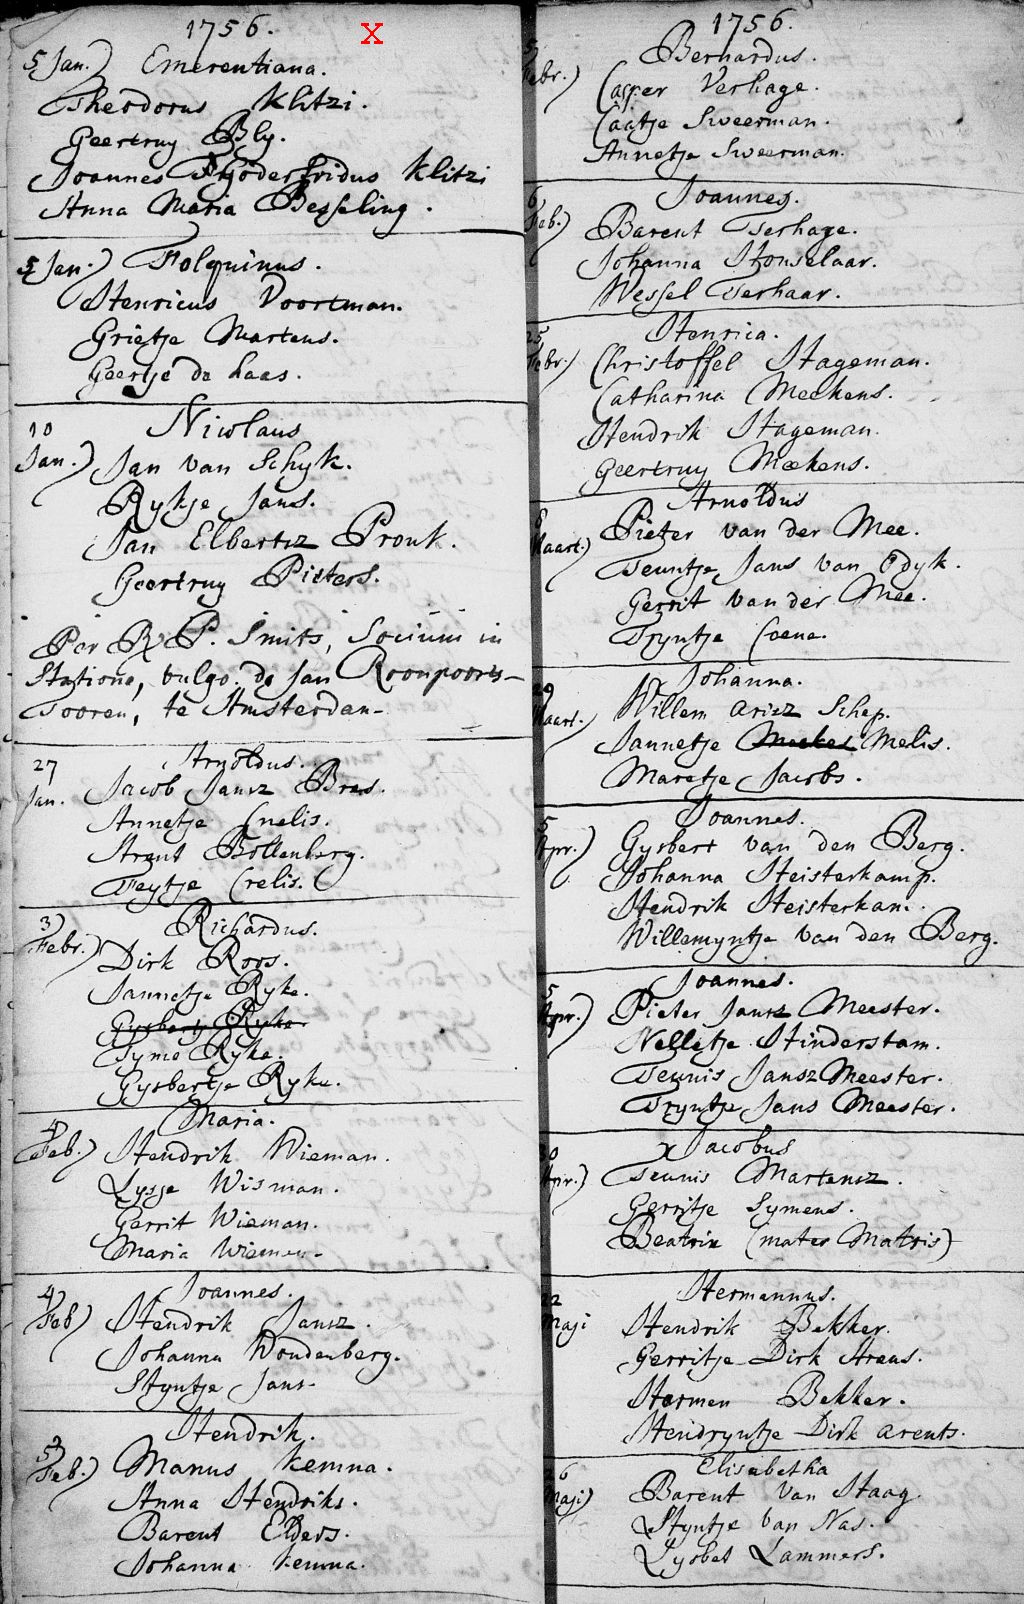 1756.
X
5 Jan.) Emerentiana.
Theodorus Klitzi.
Geertruy Bly.
Joannes Godefridus Klitzi
Anna Maria Besseling.
5 Jan.) Folquinus.
Henricus Voortman.
Grietje Martens.
Geertje de Haas.
10 Nicolaus
Jan.) Jan van Schyk.
Rykje Jans.
Jan Elbertsz Pronk.
Geertruy Pieters.
Per R. P. Smits, Socium in
Statione, vulgo. de Jan Roonpoorts-
Tooren, te Amsterdam-
27 Arnoldus.
Jan. Jacob Jansz Bras.
Annetje Cnelis.
Arent Bollenberg.
Teytje Crelis.
3 Richardus.
Febr.) Dirk Roos.
Jannetje Ryke.
Gysbertje Ryke.
Symo Ryke.
Gysbertje Ryke.
4 Maria.
Feb.) Hendrik Wieman.
Lysje Wisman.
Gerrit Wieman.
Maria Wieman-
4 Joannes.
Feb) Hendrik Jansz.
Johanna Woudenberg.
Styntje Jans-
5 Hendrik.
Feb.) Manus Kemna.
Anna Hendriks.
Barent Elders.
Johanna Kemna.
1756.
5 Bernardus.
Febr.) Casper Verhage.
Caatje Sweerman.
Annetje Sweerman.
6 Joannes.
Feb.) Barent Terhage.
Johanna Honselaar.
Wessel Terhaar.
25 Henrica.
Febr.) Christoffel Hageman.
Catharina Meekens.
Hendrik Hageman.
Geertruy Meekens.
8 Arnoldus
Maart.) Pieter van der Mee.
Teuntje Jans van Odyk.
Gerrit van der Mee.
Tryntje Coene.
29 Johanna.
Maart.) Willem Arisz Schep.
Jannetje Meekes Melis.
Maretje Jacobs.
5 Joannes.
Apr.) Gysbert van den Berg.
Johanna Heisterkamp.
Hendrik Heisterkam.
Willemyntje van den Berg.
5 Joannes.
Apr.) Pieter Jansz Meester.
Nelletje Hinderstam.
Teunis Jansz Meester.
Tryntje Jans Meester.
20 x Jacobus
Apr.) Teunis Martensz.
Gerritje Symens.
Beatrix (mater Matris)
22 Hermannus.
Maji Hendrik Bekker.
Gerritje Dirk Arens.
Harmen Bekker.
Hendryntje Dirk Arents.
26 Elisabetha
Maji) Barent van Haag.
Styntje van Nas.
Lysbet Lammers.